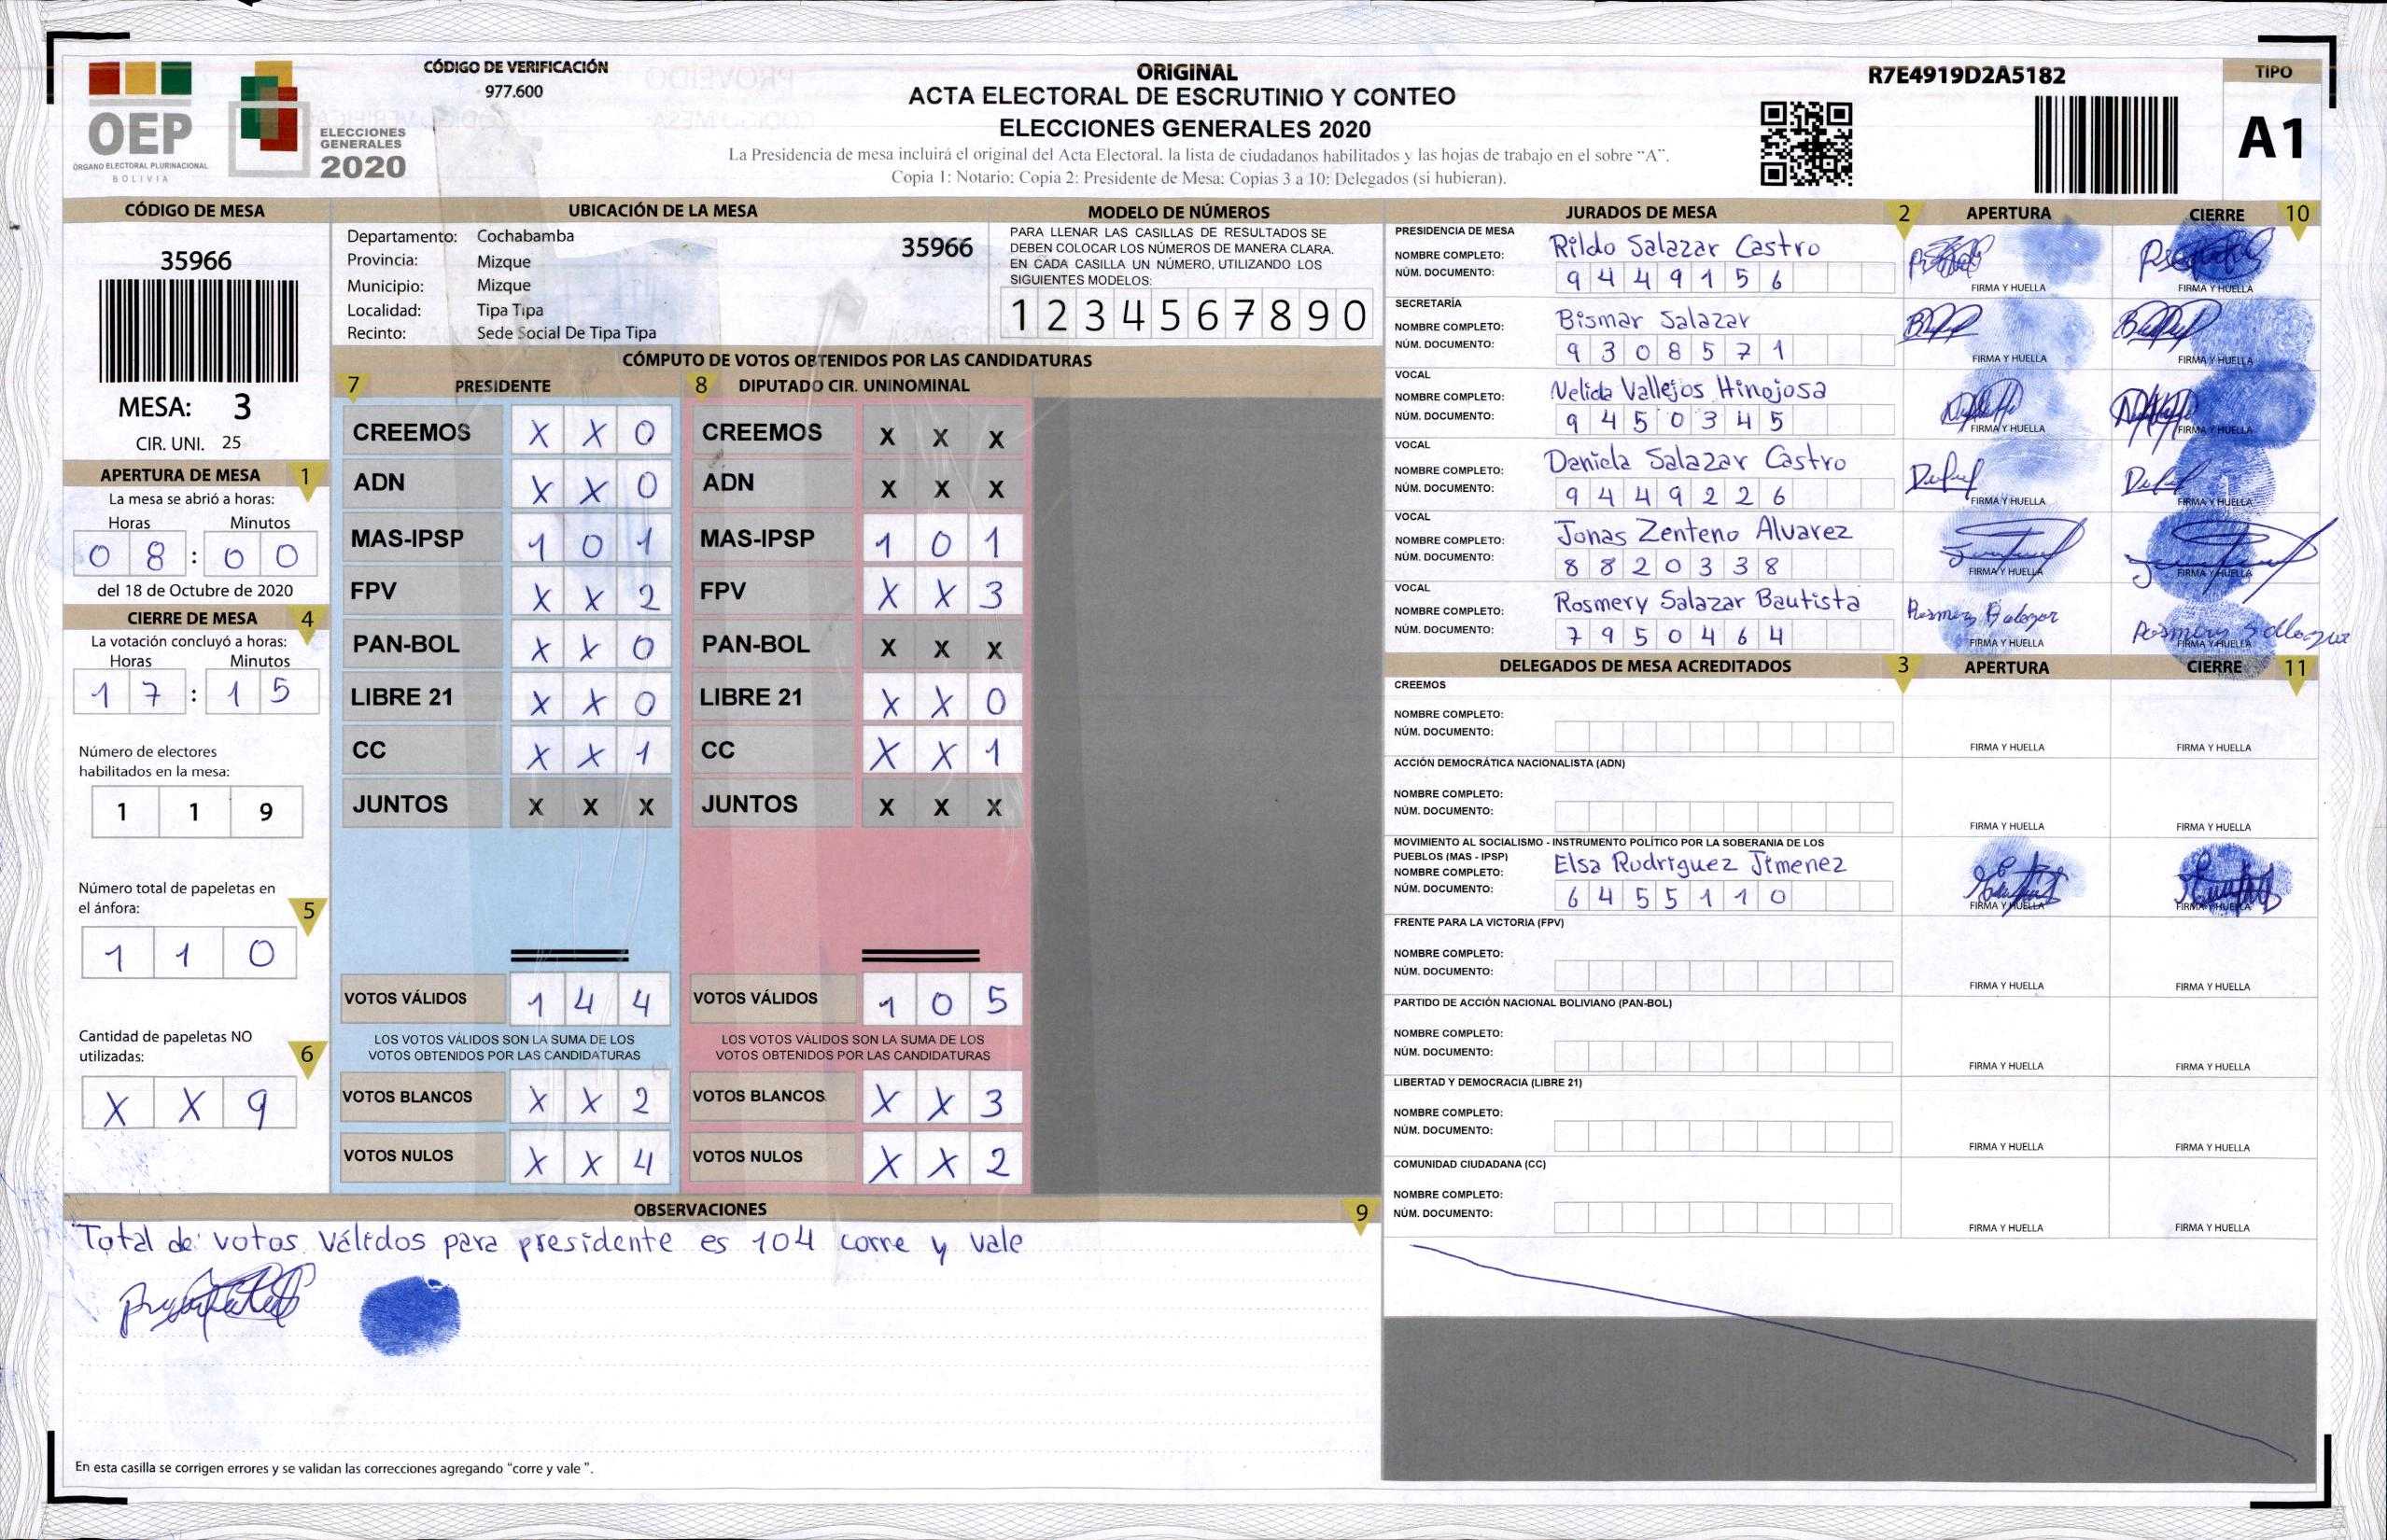 OEP
ÓRGANO ELECTORAL PLURINACIONAL
BOLIVIA
ELECCIONES
GENERALES
2020
CÓDIGO DE VERIFICACIÓN
977.600
ORIGINAL
ACTA ELECTORAL DE ESCRUTINIO Y CONTEO
ELECCIONES GENERALES 2020
La Presidencia de mesa incluirá el original del Acta Electoral. la lista de ciudadanos habilitados y las hojas de trabajo en el sobre "A".
Copia 1: Notario; Copia 2: Presidente de Mesa; Copias 3 a 10: Delegados (si hubieran).
R7E4919D2A5182
TIPO
A1
CÓDIGO DE MESA
35966
MESA: 3
CIR. UNI. 25
APERTURA DE MESA 1
La mesa se abrió a horas:
Horas Minutos
0 8 : 0 0
del 18 de Octubre de 2020
CIERRE DE MESA 4
La votación concluyó a horas:
Horas Minutos
1 7 : 1 5
Número de electores
habilitados en la mesa:
1 1 9
Número total de papeletas en
el ánfora: 5
1 1 0
Cantidad de papeletas NO
utilizadas: 6
X X 9
UBICACIÓN DE LA MESA
Departamento: Cochabamba 35966
Provincia: Mizque
Municipio: Mizque
Localidad: Tipa Tipa
Recinto: Sede Social De Tipa Tipa
MODELO DE NÚMEROS
PARA LLENAR LAS CASILLAS DE RESULTADOS SE
DEBEN COLOCAR LOS NÚMEROS DE MANERA CLARA.
EN CADA CASILLA UN NÚMERO, UTILIZANDO LOS
SIGUIENTES MODELOS:
1 2 3 4 5 6 7 8 9 0
CÓMPUTO DE VOTOS OBTENIDOS POR LAS CANDIDATURAS
7 PRESIDENTE 8 DIPUTADO CIR. UNINOMINAL
CREEMOS X X 0 CREEMOS X X X
ADN X X 0 ADN X X X
MAS-IPSP 1 0 1 MAS-IPSP 1 0 1
FPV X X 2 FPV X X 3
PAN-BOL X X 0 PAN-BOL X X X
LIBRE 21 X X 0 LIBRE 21 X X 0
CC X X 1 CC X X 1
JUNTOS X X X JUNTOS X X X
VOTOS VÁLIDOS 1 4 4 VOTOS VÁLIDOS 1 0 5
LOS VOTOS VÁLIDOS SON LA SUMA DE LOS LOS VOTOS VÁLIDOS SON LA SUMA DE LOS
VOTOS OBTENIDOS POR LAS CANDIDATURAS VOTOS OBTENIDOS POR LAS CANDIDATURAS
VOTOS BLANCOS X X 2 VOTOS BLANCOS X X 3
VOTOS NULOS X X 4 VOTOS NULOS X X 2
OBSERVACIONES 9
Total de votos Válidos para presidente es 104 corre y vale
En esta casilla se corrigen errores y se validan las correcciones agregando "corre y vale ".
JURADOS DE MESA 2 APERTURA CIERRE 10
PRESIDENCIA DE MESA
NOMBRE COMPLETO: Rildo Salazar Castro
NÚM. DOCUMENTO: 9 4 4 9 1 5 6
FIRMA Y HUELLA FIRMA Y HUELLA
SECRETARÍA
NOMBRE COMPLETO: Bismar Salazar
NÚM. DOCUMENTO: 9 3 0 8 5 7 1
FIRMA Y HUELLA FIRMA Y HUELLA
VOCAL
NOMBRE COMPLETO: Nelida Vallejos Hinojosa
NÚM. DOCUMENTO: 9 4 5 0 3 4 5
FIRMA Y HUELLA FIRMA Y HUELLA
VOCAL
NOMBRE COMPLETO: Daniela Salazar Castro
NÚM. DOCUMENTO: 9 4 4 9 2 2 6
FIRMA Y HUELLA FIRMA Y HUELLA
VOCAL
NOMBRE COMPLETO: Jonas Zenteno Alvarez
NÚM. DOCUMENTO: 8 8 2 0 3 3 8
FIRMA Y HUELLA FIRMA Y HUELLA
VOCAL
NOMBRE COMPLETO: Rosmery Salazar Bautista
NÚM. DOCUMENTO: 7 9 5 0 4 6 4
FIRMA Y HUELLA FIRMA Y HUELLA
DELEGADOS DE MESA ACREDITADOS 3 APERTURA CIERRE 11
CREEMOS
NOMBRE COMPLETO:
NÚM. DOCUMENTO:
FIRMA Y HUELLA FIRMA Y HUELLA
ACCIÓN DEMOCRÁTICA NACIONALISTA (ADN)
NOMBRE COMPLETO:
NÚM. DOCUMENTO:
FIRMA Y HUELLA FIRMA Y HUELLA
MOVIMIENTO AL SOCIALISMO - INSTRUMENTO POLÍTICO POR LA SOBERANIA DE LOS
PUEBLOS (MAS - IPSP)
NOMBRE COMPLETO: Elsa Rodriguez Jimenez
NÚM. DOCUMENTO: 6 4 5 5 1 1 0
FIRMA Y HUELLA FIRMA Y HUELLA
FRENTE PARA LA VICTORIA (FPV)
NOMBRE COMPLETO:
NÚM. DOCUMENTO:
FIRMA Y HUELLA FIRMA Y HUELLA
PARTIDO DE ACCIÓN NACIONAL BOLIVIANO (PAN-BOL)
NOMBRE COMPLETO:
NÚM. DOCUMENTO:
FIRMA Y HUELLA FIRMA Y HUELLA
LIBERTAD Y DEMOCRACIA (LIBRE 21)
NOMBRE COMPLETO:
NÚM. DOCUMENTO:
FIRMA Y HUELLA FIRMA Y HUELLA
COMUNIDAD CIUDADANA (CC)
NOMBRE COMPLETO:
NÚM. DOCUMENTO:
FIRMA Y HUELLA FIRMA Y HUELLA